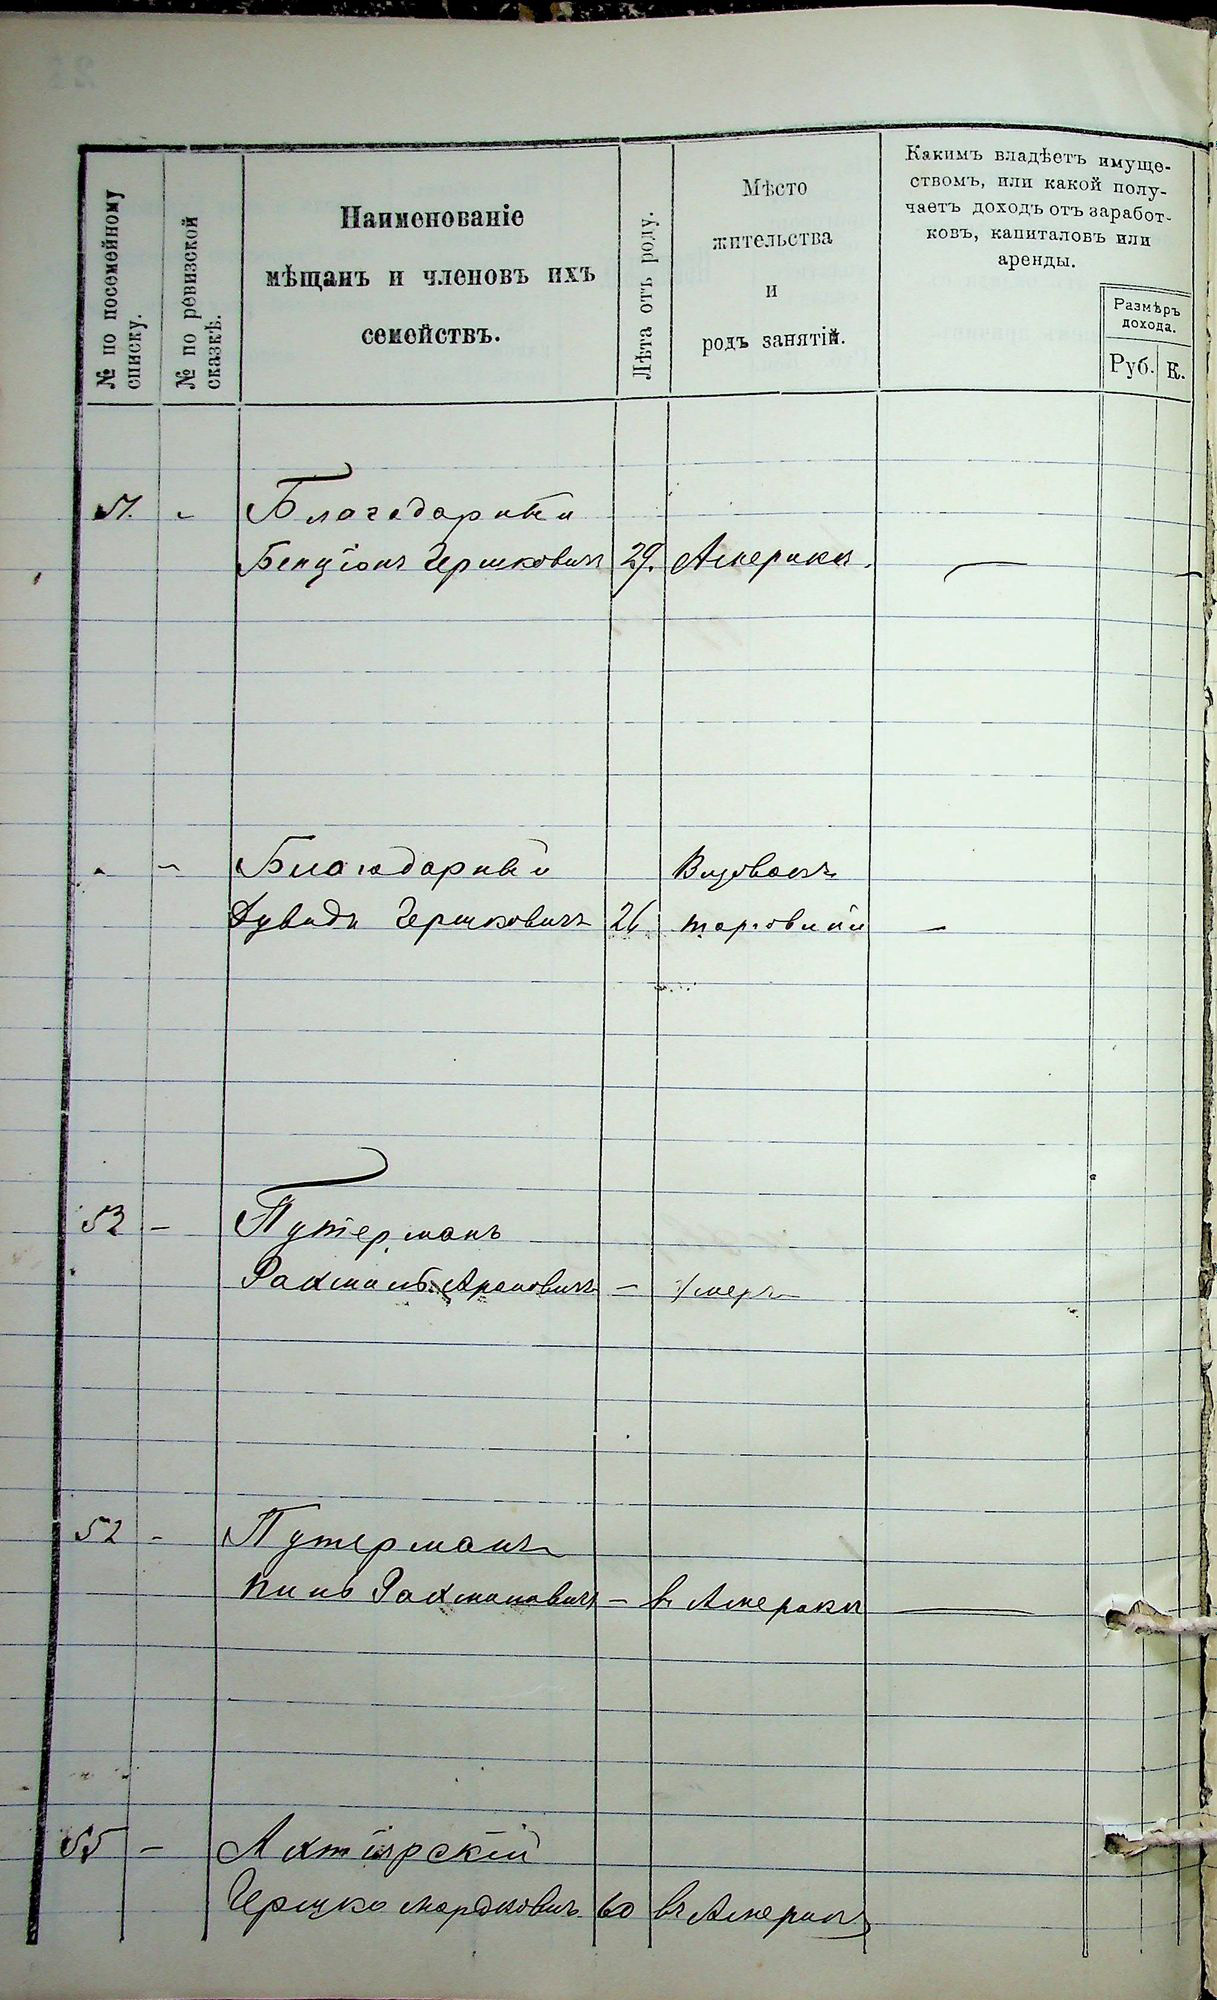 № по посемейному
списку.
№ по ревизской
сказкѣ.
Наименованіе
мѣщанъ и членовъ ихъ
семействъ.
Лѣта отъ роду.
Мѣсто
жительства
и
родъ занятій.
Какимъ владѣетъ имуще-
ствомъ, или какой полу-
чаетъ доходъ отъ заработ-
ковъ, капиталовъ или
аренды.
Размѣръ
дохода.
Руб. К.
51. - Благодарный
Бенціонъ Гершковичъ 29. Америки. —
- - Благодарный
Дувидъ Гершковичъ 26 торговий —
52 - Путерманъ
Рахмиль Ароновичъ - Умеръ
52 - Путерманъ
Рахмиловичъ - въ Америки —
55 - Ахтырскій
Гершко Мордковичъ 60 въ Америкѣ